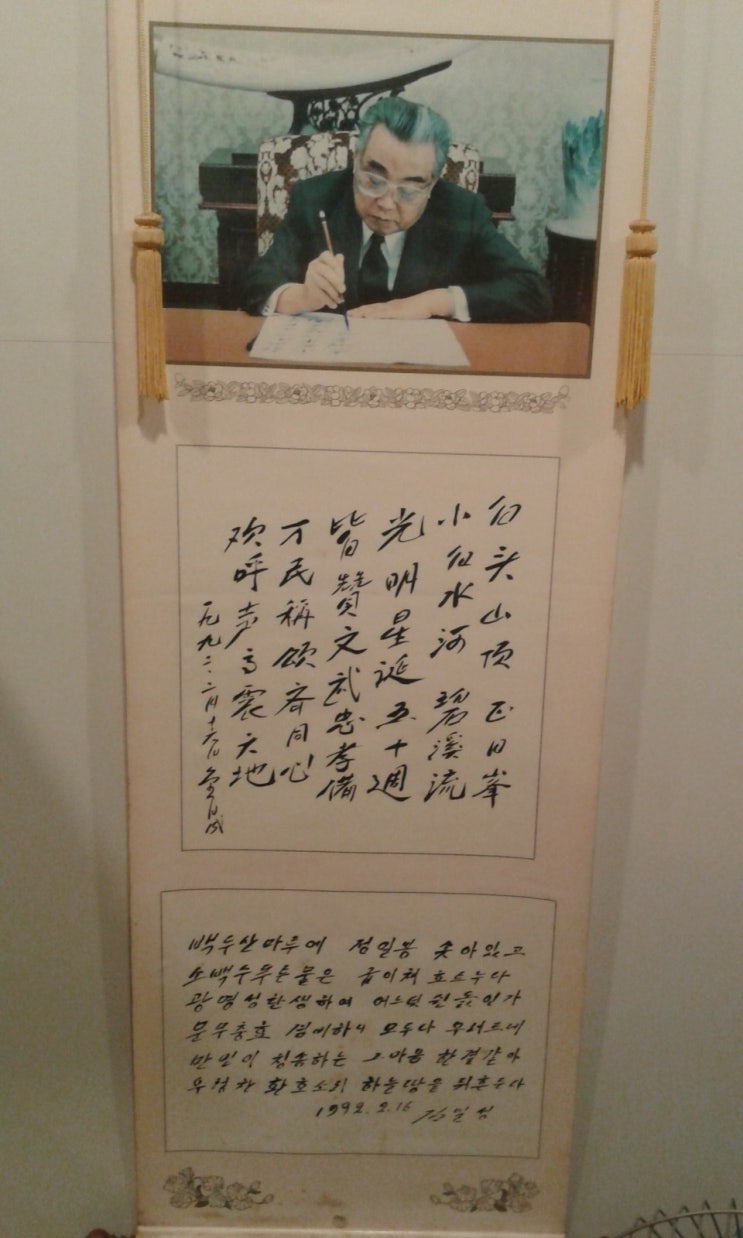 白头山顶正日峯
小白水河碧溪流
光明星誕五十週
皆贊文武忠孝備
万民稱颂齐同心
欢呼声高震天地
一九九二.二月十六日 金日成
백두산마루에 정일봉 솟아있고
소백수푸른물은 굽이쳐 흐르누나
광명성탄생하여 어느덧 쉰돐인가
문무충효 겸비하니 모두다 우러르네
만민이 칭송하는 그마음 한결같아
우렁찬 환호소리 하늘땅을 뒤흔든다
1992. 2.16 김일성